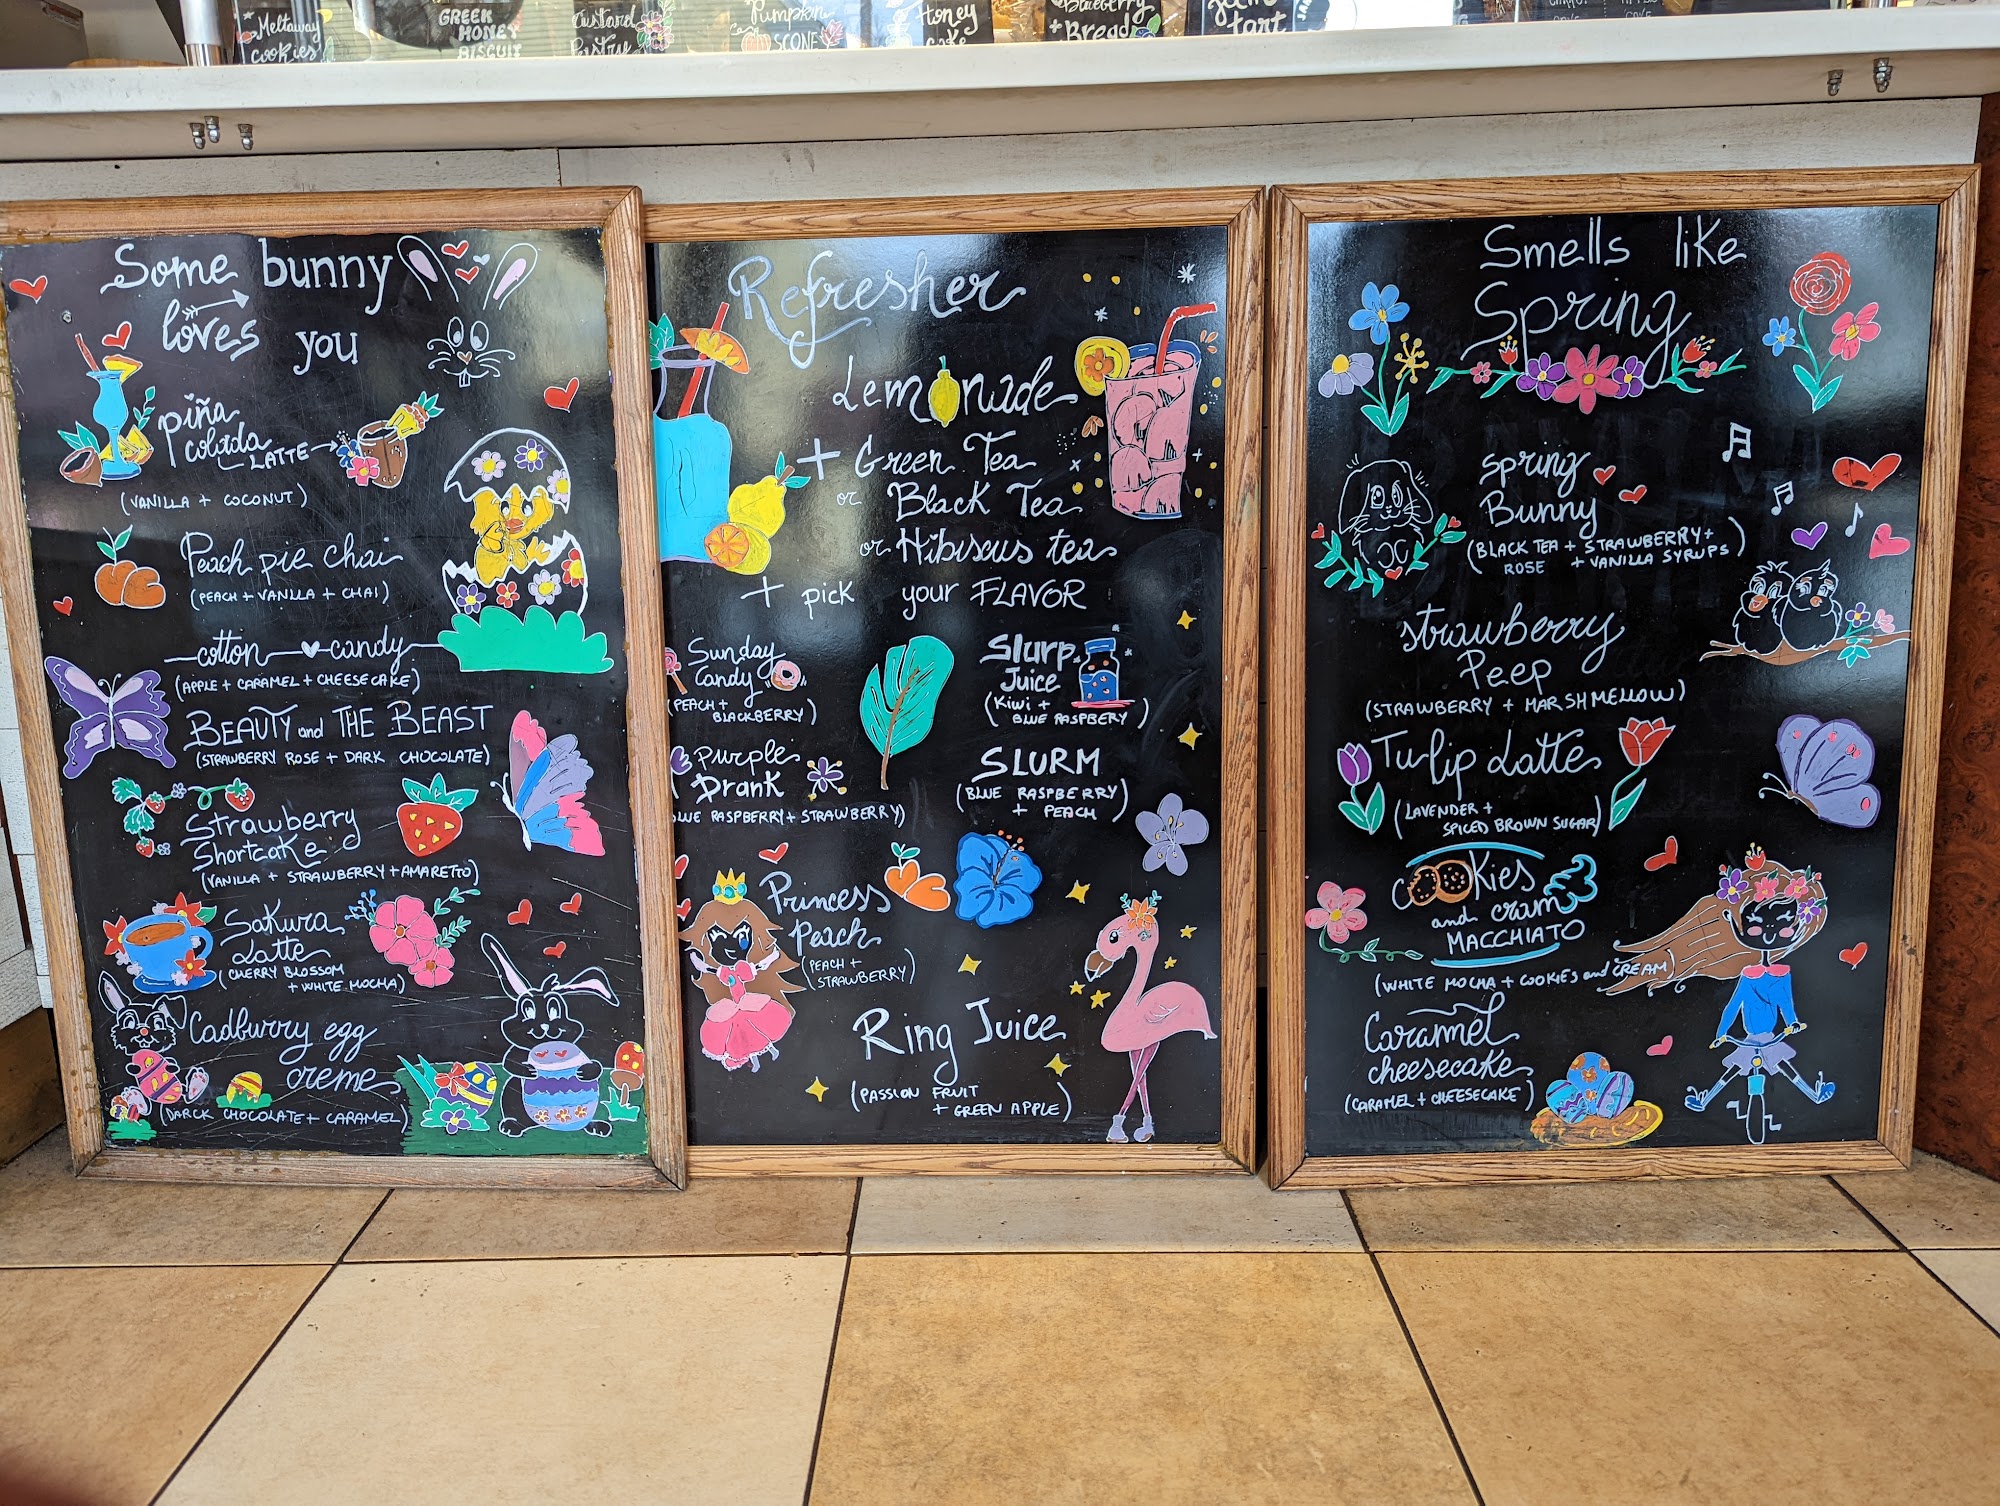 Meltaway
Cookies
GREEK
HONEY
BISCUIT
Custard
Pastry
Pumpkin
SCONE
Honey
Cake
Blueberry
Bread
Jam
tart
Some bunny
loves you
piña
colada
LATTE
(VANILLA + COCONUT)
Peach pie chai
(PEACH + VANILLA + CHAI)
cotton candy
(APPLE + CARAMEL + CHEESECAKE)
BEAUTY and THE BEAST
(STRAWBERRY ROSE + DARK CHOCOLATE)
Strawberry
Shortcake
(VANILLA + STRAWBERRY + AMARETTO)
Sakura
Latte
(CHERRY BLOSSOM
+ WHITE MOCHA)
Cadburry egg
creme
(DARCK CHOCOLATE + CARAMEL)
Refresher
Lemonade
+ Green Tea
or Black Tea
or Hibiscus tea
+ pick your FLAVOR
Sunday
Candy
(PEACH +
BLACKBERRY)
Slurp
Juice
(Kiwi +
BLUE RASPBERY)
Purple
Drank
BLUE RASPBERRY + STRAWBERRY)
SLURM
(BLUE RASPBERRY
+ PEACH)
Princess
Peach
(PEACH +
STRAWBERRY)
Ring Juice
(PASSION FRUIT
+ GREEN APPLE)
Smells like
Spring
Spring
Bunny
(BLACK TEA + STRAWBERRY +
ROSE + VANILLA SYRUPS)
Strawberry
Peep
(STRAWBERRY + MARSHMELLOW)
Tulip Latte
(LAVENDER +
SPICED BROWN SUGAR)
COOKies
and cram
MACCHIATO
(WHITE MOCHA + COOKIES and CREAM)
Caramel
cheesecake
(CARAMEL + CHEESECAKE)